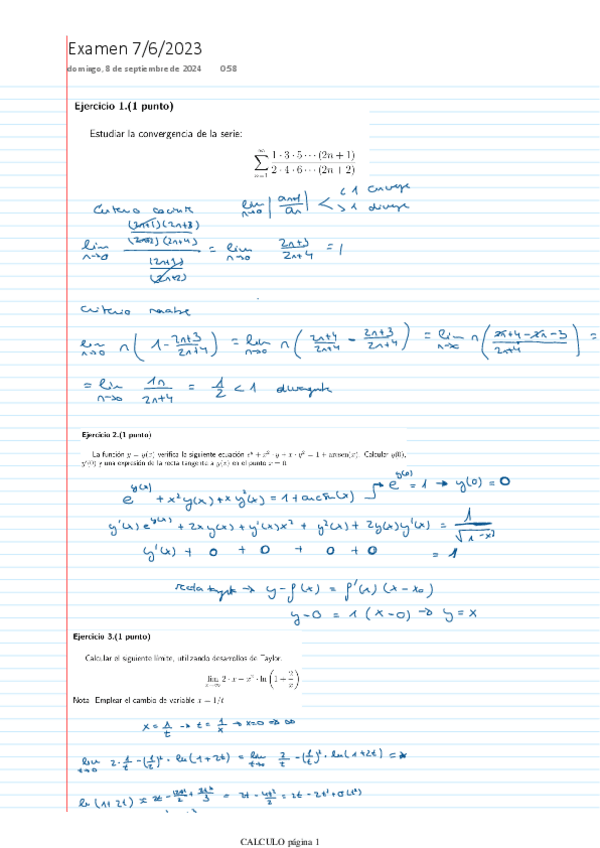 Examen 7/6/2023
domingo, 8 de septiembre de 2024 0:58
Ejercicio 1.(1 punto)
Estudiar la convergencia de la serie:
∑_{n=1}^{∞} (1 · 3 · 5 ··· (2n + 1))/(2 · 4 · 6 ··· (2n + 2))
Criterio cociente lim_{n→∞} |an+1/an| < <1 converge
>1 diverge
lim_{n→∞} ((2n+1)(2n+3)/(2n+2)(2n+4))/((2n+1)/(2n+2)) = lim_{n→∞} (2n+3)/(2n+4) = 1
Criterio raabe
lim_{n→∞} n(1 - (2n+3)/(2n+4)) = lim_{n→∞} n((2n+4)/(2n+4) - (2n+3)/(2n+4)) = lim_{n→∞} n((2n+4-2n-3)/(2n+4)) =
= lim_{n→∞} 1n/(2n+4) = 1/2 < 1 divergente
Ejercicio 2.(1 punto)
La función y = y(x) verifica la siguiente ecuación e^y + x² · y + x · y² = 1 + arcsen(x). Calcular y(0),
y'(0) y una expresión de la recta tangente a y(x) en el punto x = 0
e^{y(x)} + x²y(x) + x y²(x) = 1 + arcsin(x) e^{y(0)} = 1 → y(0) = 0
y'(x) e^{y(x)} + 2x y(x) + y'(x) x² + y²(x) + 2y(x) y'(x) = 1/√(1-x²)
y'(x) + 0 + 0 + 0 + 0 = 1
recta tgte → y - f(x) = f'(x) (x - x₀)
y - 0 = 1 (x - 0) → y = x
Ejercicio 3.(1 punto)
Calcular el siguiente límite, utilizando desarrollos de Taylor.
lim_{x→∞} 2 · x − x² · ln(1 + 2/x)
Nota: Emplear el cambio de variable x = 1/t
x = 1/t → t = 1/x → x=0 ⇒ ∞
lim_{t→0} 2·1/t - (1/t)² · ln(1+2t) = lim_{t→0} 2/t - (1/t)² · ln(1+2t) =
CALCULO página 1